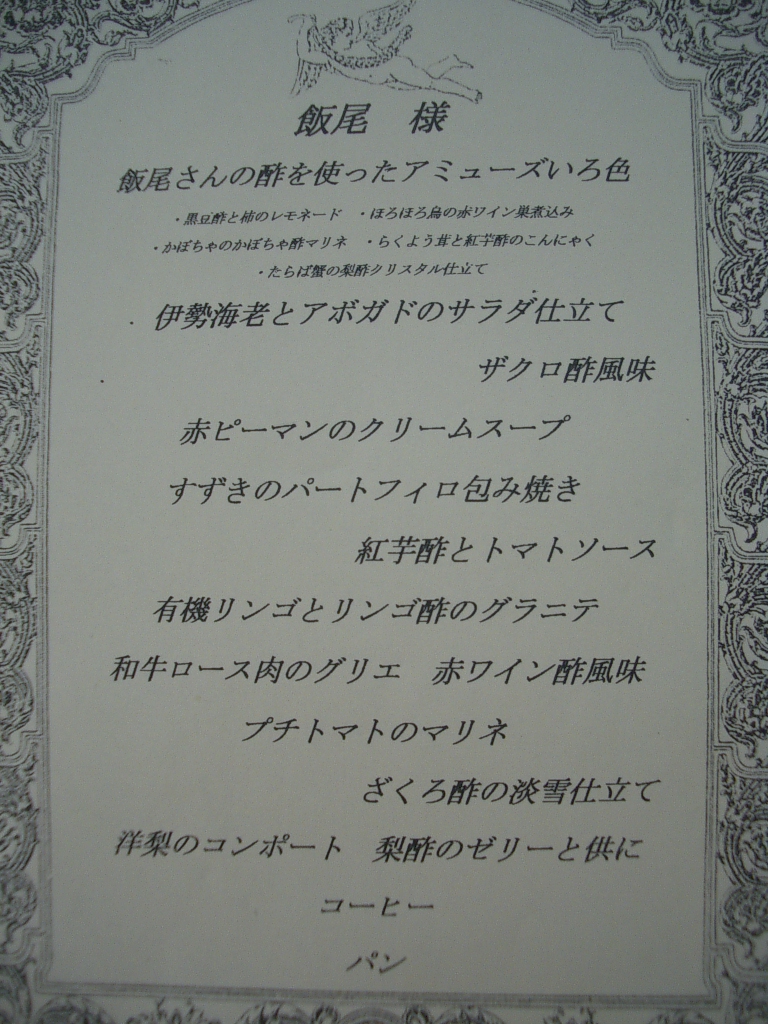 飯尾　様
飯尾さんの酢を使ったアミューズいろ色
・黒豆酢と柿のレモネード　・ほろほろ鳥の赤ワイン巣煮込み
・かぼちゃのかぼちゃ酢マリネ　・らくよう茸と紅芋酢のこんにゃく
・たらば蟹の梨酢クリスタル仕立て
伊勢海老とアボガドのサラダ仕立て
ザクロ酢風味
赤ピーマンのクリームスープ
すずきのパートフィロ包み焼き
紅芋酢とトマトソース
有機リンゴとリンゴ酢のグラニテ
和牛ロース肉のグリエ　赤ワイン酢風味
プチトマトのマリネ
ざくろ酢の淡雪仕立て
洋梨のコンポート　梨酢のゼリーと供に
コーヒー
パン